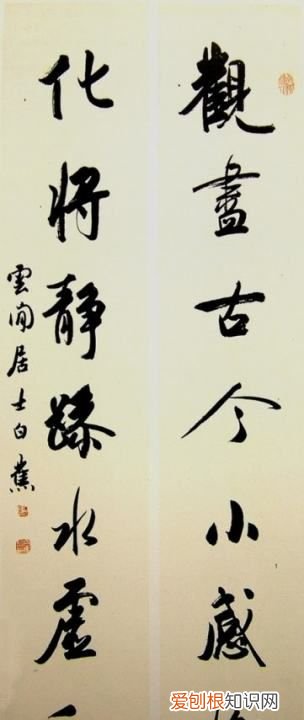 觀盡古今小感
化將靜躁水虛
雲間居士白蕉
爱刨根知识网